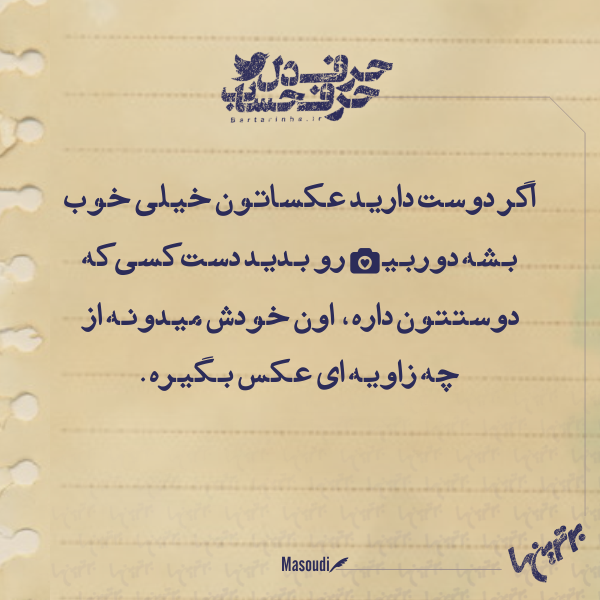 حرف دل
حرف حساب
Bartarinha.ir
اگر دوست دارید عکساتون خیلی خوب
بشه دوربین رو بدید دست کسی که
دوستتون داره، اون خودش میدونه از
چه زاویه ای عکس بگیره.
Masoudi
برترین‌ها